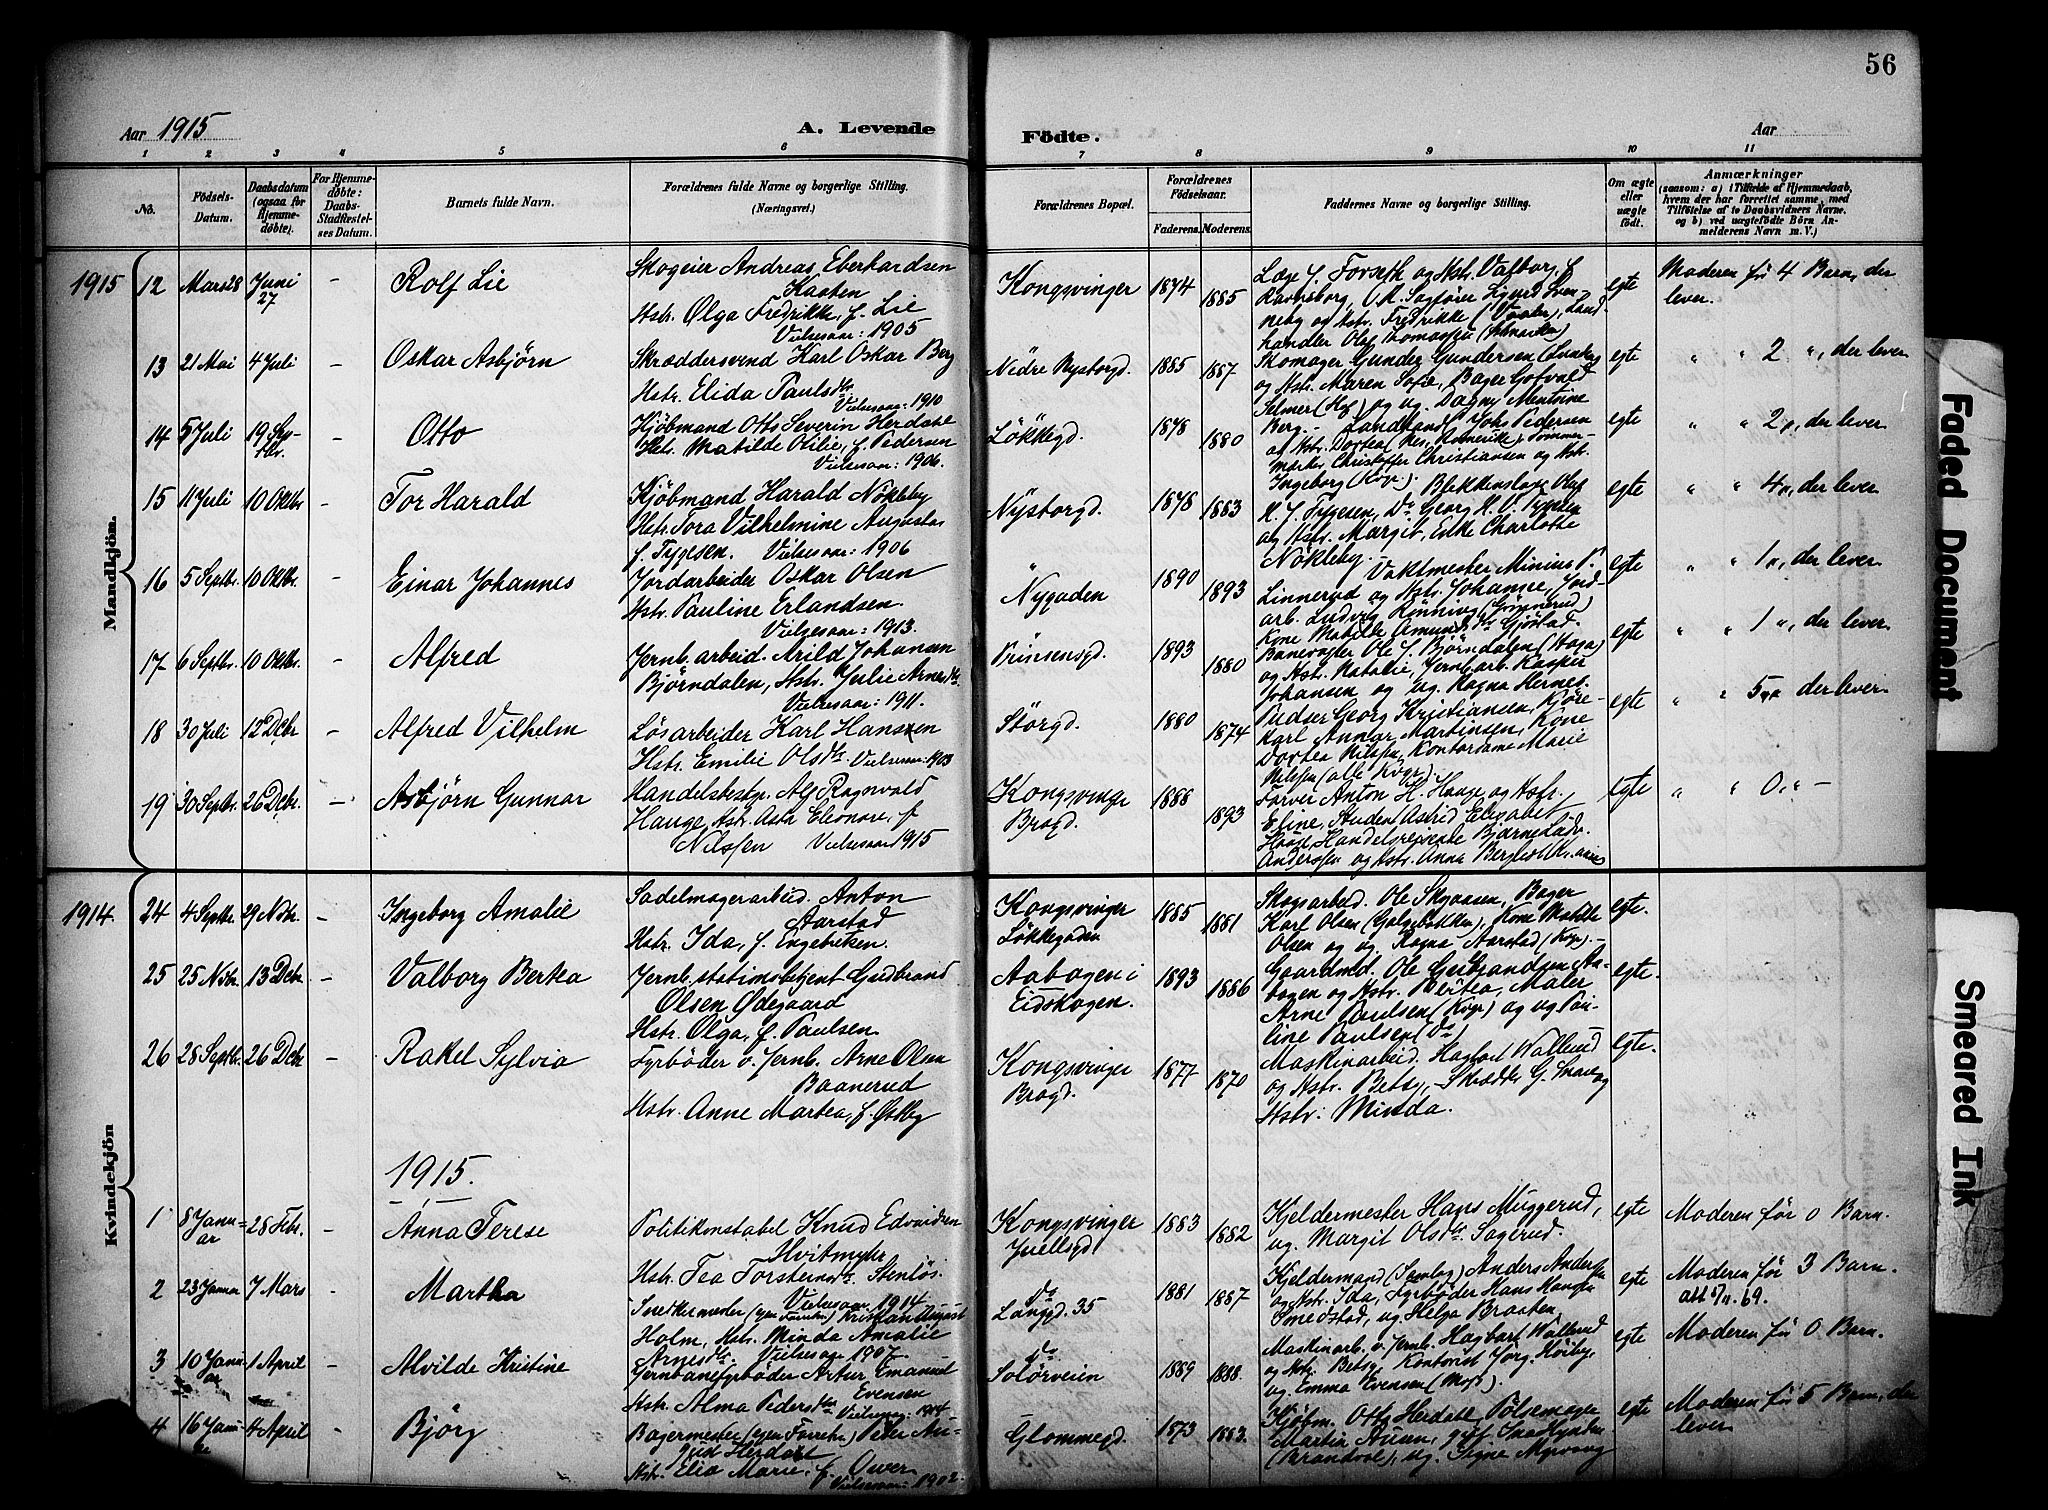 56
Aar 1915
A. Levende
Födte.
Aar
1 2 3 4 5 6 7 8 9 10 11
No.
Födsels-
Datum.
Daabsdatum
(ogsaa for
Hjemme-
døbte).
For Hjemme-
døbte:
Daabs-
Stadfæstel-
ses Datum.
Barnets fulde Navn.
Forældrenes fulde Navne og borgerlige Stilling.
(Næringsvei.)
Forældrenes Bopæl.
Forældrenes
Födselsaar.
Faderens. Moderens.
Faddernes Navne og borgerlige Stilling.
Om ægte
eller
uægte
födt.
Anmærkninger
(saasom: a) i Tilfælde af Hjemmedaab,
hvem der har forrettet samme, med
Tilföielse af to Daabsvidners Navne,
og b) ved uægtefödte Börn An-
melderens Navn m. V.)
Mandkjön.
1915 12 Mars 28 Juni 27 - Rolf Lie
Skogeier Andreas Eberhardsen
Kaaten
Hstr. Olga Fredrikke, f. Lie
Vielsesaar: 1905
Kongsvinger 1874 1885
Læge J. Forseth og Hstr. Valborg, f
Ravnsborg, O.R. Sagfører Sigurd Sven-
neby og Hstr. Fredrikke (Vaaler), Land-
handler Olaf Thomassen
egte Moderen før 4 Barn, der
lever.
13 21 Mai 4 Juli - Oskar Asbjörn
Skræddersvend Karl Oskar Berg
Hstr. Elida Paulsdtr
Vielsesaar: 1910
Nedre Nystorgd. 1885 1887
Skomager Gunder Gundersen
og Hstr. Maren Sofie, Bager Gotvald
Selmer (Kgv) og ug. Dagny Mentsine
Berg. -
egte " " 2 ", der lever
14 5 Juli 19 Sep-
tbr. - Otto
Kjöbmand Otto Severin Herdahl
Hstr. Matilde Otilie, f. Pedersen
Vielsesaar: 1906.
Løkkegd. 1878 1880
Landhand. Johs Pedersen
og Hstr. Dortea (Nes, Romerike), Tømmer-
merker Christoffer Christiansen og Hstr.
Ingeborg (Kgv.).
egte " " 2 ", der lever
15 11 Juli 10 Oktbr - Tor Harald
Kjöbmand Harald Nökleby
Hstr. Tora Vilhelmine Augusta
f. Tygesen. Vielsesaar: 1906
Nystorgd. 1878 1883
Blikkenslager Olaf
K. J. Tygesen, Do Georg K. V. Tygesen
og Hstr. Margit, Enke Charlotte
Nökleby.
egte " " 4 ", der lever
16 5 Septbr. 10 Oktbr. - Einar Johannes
Jordarbeider Oskar Olsen
Hstr. Pauline Erlandsen.
Vielsesaar: 1913.
Nygaden 1890 1893
Vaktmester Minius P.
Linnerud og Hstr. Johanne, Jord-
arb. Ludvig Rönning
Kone Matilde Amundsdtr Gjörstad.
egte " " 1 ", der lever
17 6 Septbr. 10 Oktbr - Alfred
Jernb. arbeid. Arild Johansen
Björndalen, Hstr. Julie Arnesdtr.
Vielsesaar: 1911.
Prinsensgd. 1893 1880
Banevogter Ole J. Björndalen (Haga)
og Hstr. Natalie, Jernb. arb. Kasper
Johansen og ug. Ragna Hernes.
egte " " 1 ", der lever.
18 30 Juli 12 Dcbr - Alfred Vilhelm
Løsarbeider Karl Hansen
Hstr. Emilie Olsdtr. Vielsesaar: 1903
Storgd. 1880 1874
Pudser Georg Kristiansen, Kjøre-
karl Annar Martinsen, Kone
Dortea Nilssen, Kontordame Marie
Nilssen (alle Kgv.).
egte " " 5 " der lever.
19 30 Septbr. 26 Dcbr. - Asbjörn Gunnar
Handelsbestyr. Alf Ragnvald
Hauge, Hstr. Asta Eleonore, f
Nilssen Vielsesaar 1915
Kongsvinger
Brogd. 1888 1893
Farver Anton H. Hauge og Hstr.
Eline, Student Astrid Elisabet
Handelsreisende Bjarne
Anderssen og Hstr. Anna
egte " " 0 " -
Kvindekjön
1914. 24 4 Septbr. 29 Novbr. - Ingeborg Amalie
Sadelmagerarbeid. Anton
Aarstad
Hstr. Ida, f. Engebretsen.
Kongsvinger
Løkkegaden 1885 1881
Skogsarbeid. Ole Skyaasen, Bager
Karl Olsen (Galgebakken), Kone Matilde
Olsen og ug. Ragna Aarstad (Kgv.) -
egte.
25 25 Novbr. 13 Dcbr - Valborg Bertea
Jernb. stationsbetjent Gudbrand
Olsen Ødegaard
Hstr. Olga, f. Paulsen.
Aabogen i
Eidskogen. 1893 1886
Gaardmd. Ole Gudbrandsen Aa-
bogen og Hstr. Bertea, Maler
Arne Paulsen (Kgv) og ug Pau-
line Paulsen (do)
egte.
26 28 Septbr. 26 Dcbr - Rakel Sylvia
Fyrbøder v. Jernb. Arne Olsen
Baanerud
Hstr. Anne Martea, f. Østby
Kongsvinger
Brogd. 1877 1870
Maskinarbeid. Hagbart Wallerud
og Hstr. Betsy, Skrædder G.
Hstr. Minda.
egte.
1915.
1 8 Janu-
ar 28 Febr. - Anna Terese
Politikonstabel Knud Edvardsen
Hvitmyhr
Hstr. Tea Torstensdtr. Stenløs.
Vielsesaar: 1914
Kongsvinger
Juellsgd 1883 1882
Kjeldermester Hans Muggerud,
ug. Margit Olsdtr Sagerud.
egte Moderen før 0 Barn.
2 23 Januar 7 Mars - Martha
Snedkermester (egen Forretn.) Kristian August
Holm, Hstr. Minda Amalie
Arnesdtr. Vielsesaar 1907
do
Langgd. 35 1881 1887
Kjeldermand (Samlag) Anders Anderssen
og Hstr. Ida, Fyrbøder Hans Hansen
Smedstad, ug Helga Braaten.
egte Moderen før 3 Barn.
att 5/11. 69.
3 10 Janu
ar 1 April - Alvilde Kristine
Jernbanefyrbøder Artur Emanuel
Evensen
Hstr. Alma Pedersdtr
Vielsesaar: 1914
do
Solørveien 1889 1888.
Maskinarb. v. Jernb. Hagbart Wallerud
og Hstr. Betsy, Kontorist Jörg. Høiby,
ug. Emma Evensen (Moss).
egte Moderen før 0 Barn.
4 16 Janu- 4 April - Bjørg
Bagermester (egen Forretn.) Peter Au-
gust Herdahl
Hstr. Elia Marie, f. Over
Vielsesaar: 1902.
Glommegd. 1873 1883.
Kjøbm. Otto Herdahl, Pølsemager
Martin Aasen, gift
(Brandval), ug. Signe Myrvang
egte Moderen før 5 Barn, der
lever
Faded Document
Smeared Ink